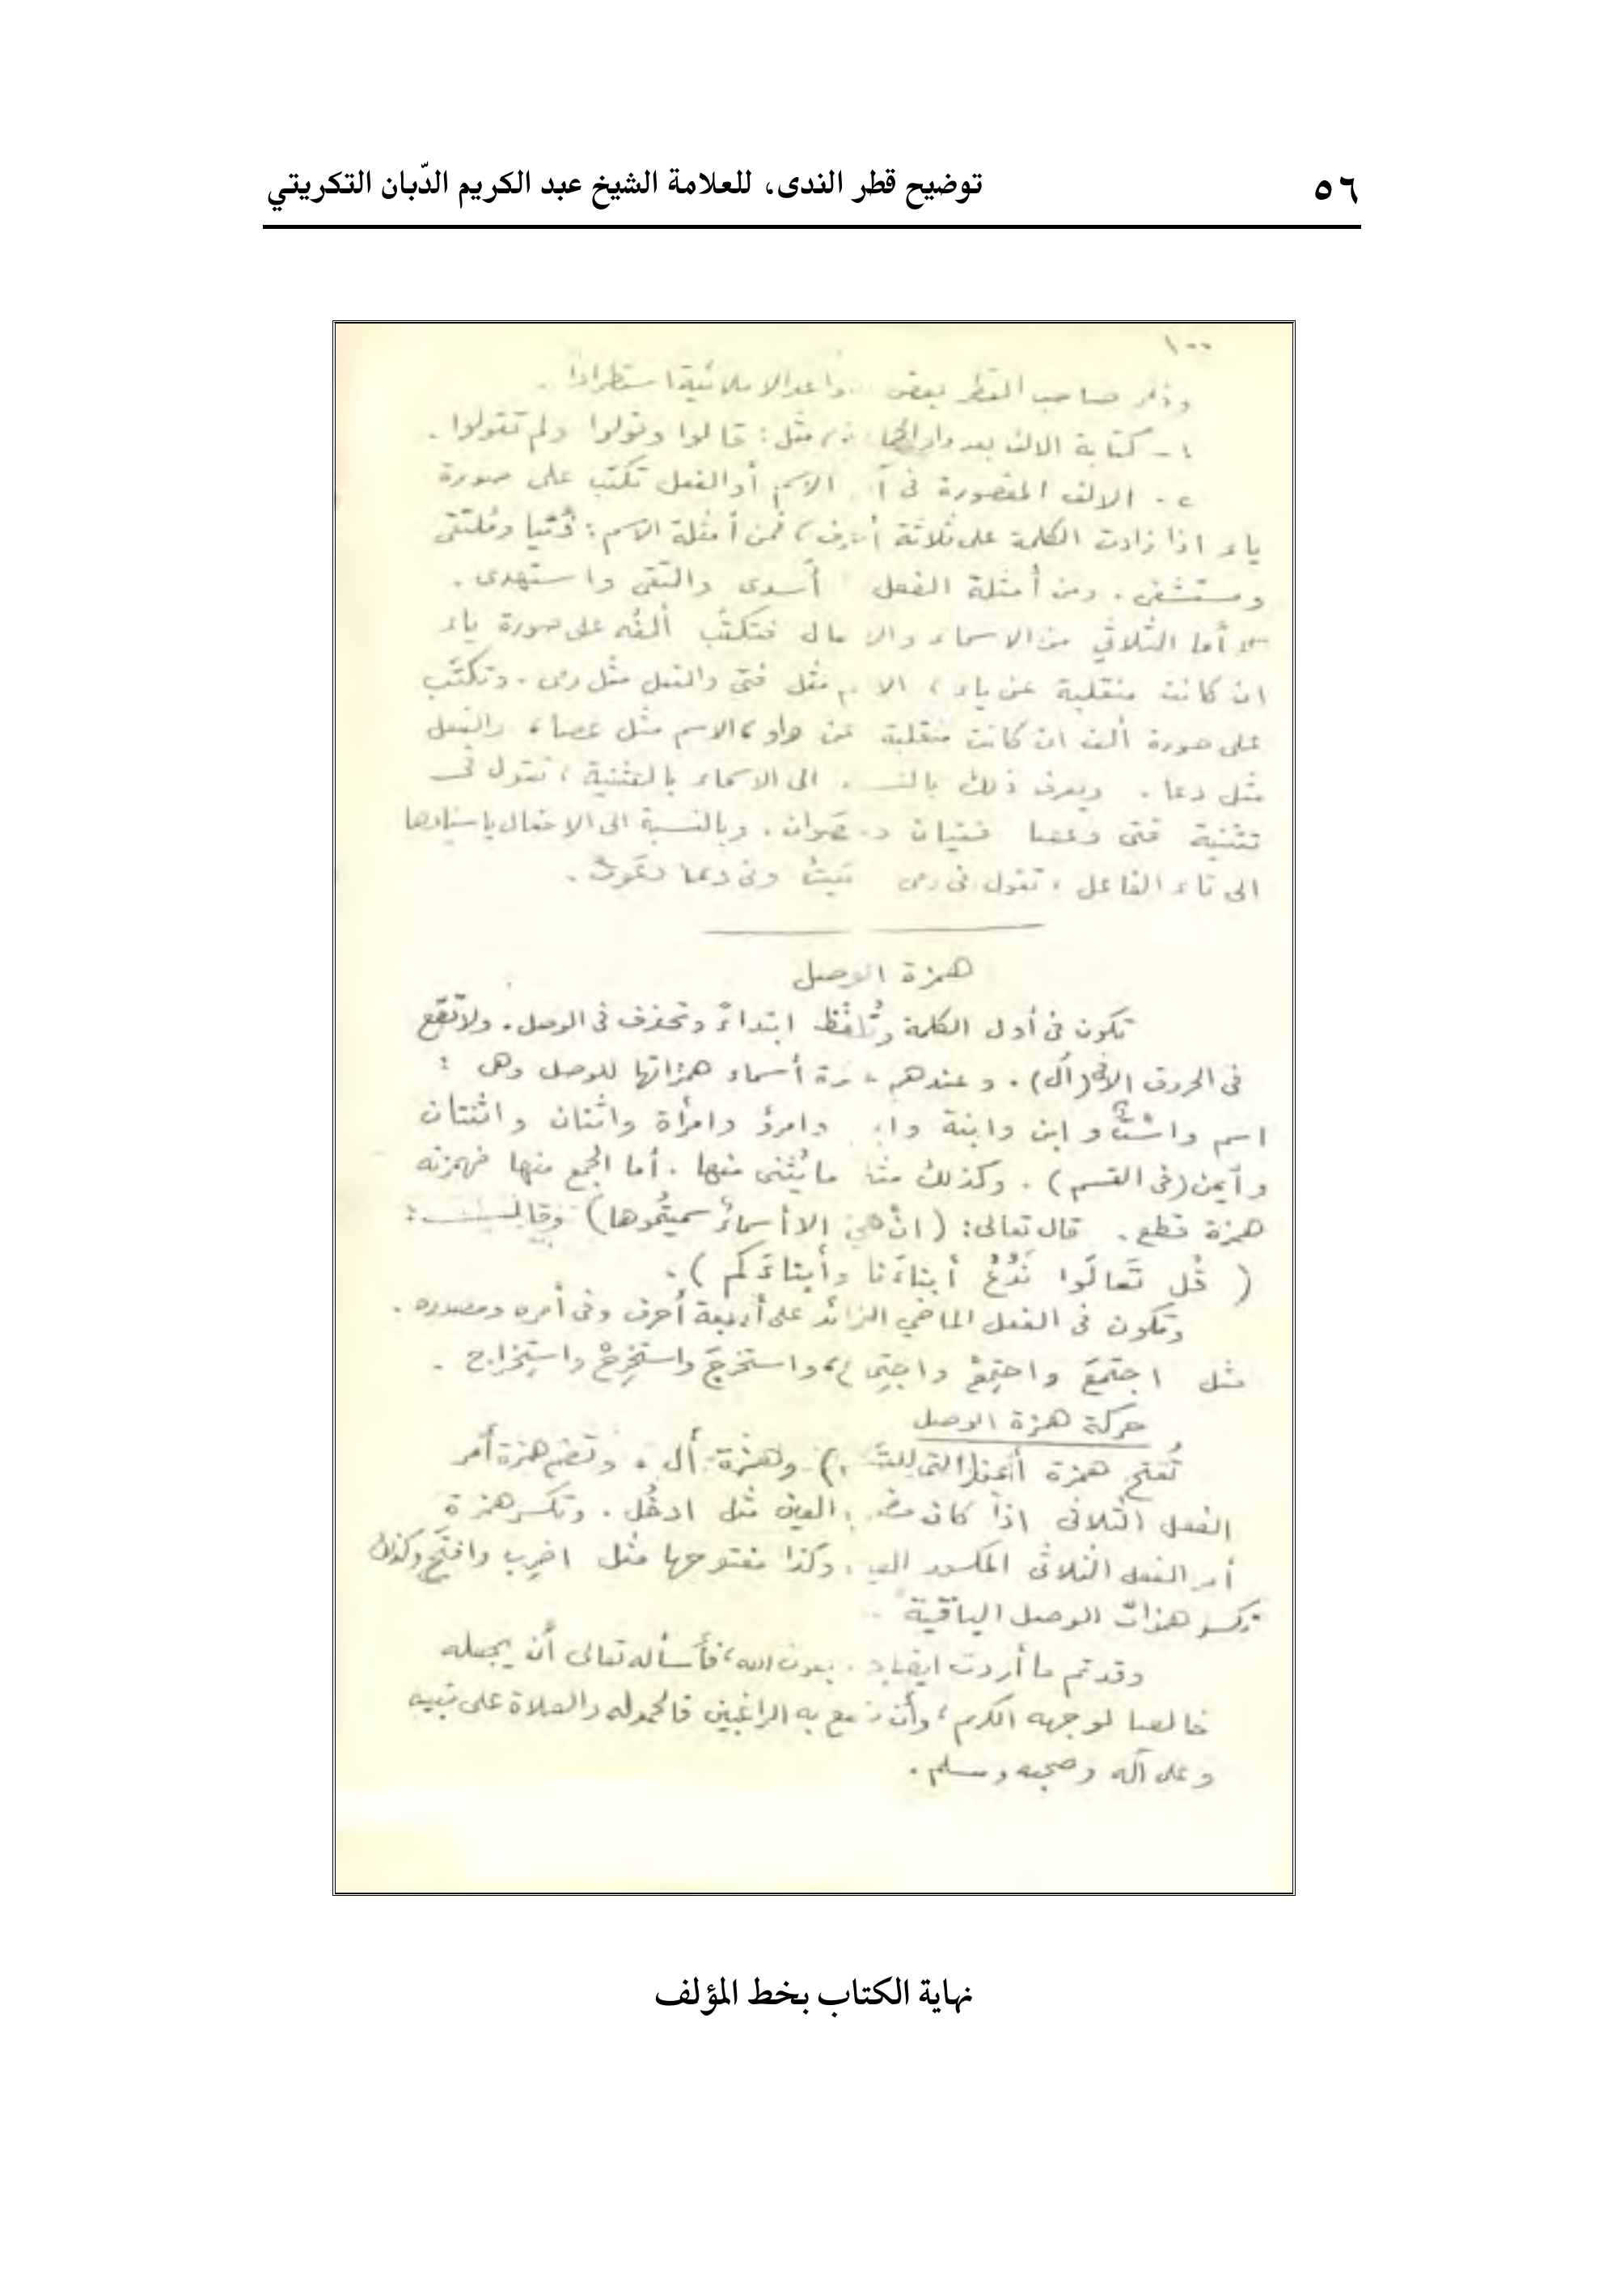 ٥٦ توضيح قطر الندى، للعلامة الشيخ عبد الكريم الدّبان التكريتي
١٠٠
وذكر صاحب القطر بعض الاملائية استطرادا .
١ - كتابة الالف بعد واو مثل : قالوا وقولوا ولم تقولوا .
٢ - الالف المقصورة في الاسم أو الفعل تكتب على صورة
ياء اذا زادت الكلمة على ثلاثة أحرف ، فمن أمثلة الاسم : وملتقى
ومستشفى . ومن أمثلة الفعل أسدى والتقى واستهدى .
٣ - أما الثلاثي من الاسماء والافعال فتكتب ألفه على صورة ياء
ان كانت منقلبة عن ياء ، الاسم مثل فتى والفعل مثل رمى . وتكتب
على صورة ألف ان كانت منقلبة عن واو ، الاسم مثل عصا ، والفعل
مثل دعا . ويعرف ذلك الى الاسماء بالتثنية ، تقول في
تثنية فتى وعصا فتيان وعصوان . وبالنسبة الى الافعال باسنادها
الى تاء الفاعل ، تقول في رمى رميت وفي دعا دعوت .
همزة الوصل
تكون في أول الكلمة وتُلفَظ ابتداءً وتحذف في الوصل . ولا تقع
في الحروف الا في (أل) . وعندهم أسماء همزاتها للوصل وهي :
اسم واست وابن وابنة وامرؤ وامرأة واثنان واثنتان
وأيمن (في القسم) . وكذلك ما يُثنى منها . أما الجمع منها فهمزته
همزة قطع . قال تعالى : ( ان هي الا أسماءٌ سميتموها )
( قُل تَعالَوا نَدْعُ أبناءَنا وأبناءَكم ) .
وتكون في الفعل الماضي الزائد على أربعة أحرف وفي أمره ومصدره .
مثل اجتمَعَ واجتمِعْ واجتِماع ، واستخرَجَ واستخرِجْ واستِخراج .
حركة همزة الوصل
تُفتح همزة أيمن وهمزة أل . وتضم همزة أمر
الفعل الثلاثي اذا كان العين مثل ادخُل . وتكسر همزة
أمر الفعل الثلاثي المكسور العين ، وكذا مفتوحها مثل اضرِب وافتَح وكذلك
تكسر همزات الوصل الباقية .
وقد تم ما أردت بعون الله ، فأسأله تعالى أن يجعله
خالصا لوجهه الكريم ، وأن ينفع به الراغبين فالحمد له والصلاة على نبيه
وعلى آله وصحبه وسلم .
نهاية الكتاب بخط المؤلف